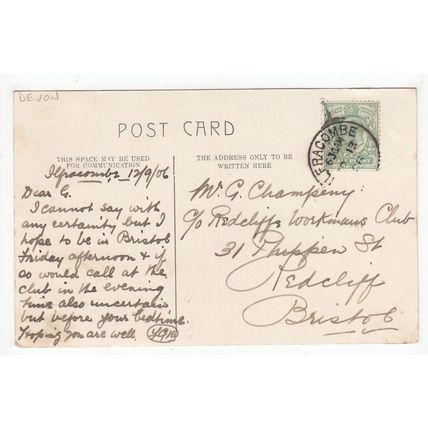 DEVON
POST CARD
THIS SPACE MAY BE USED
FOR COMMUNICATION
THE ADDRESS ONLY TO BE
WRITTEN HERE
Ilfracombe 12/9/06
Dear G.
I cannot say with
any certainty but I
hope to be in Bristol
Friday afternoon & if
so would call at the
club in the evening
time also uncertain
but before your bedtime.
Hoping you are well.
ILFRACOMBE
Mr G. Champeny
c/o Redcliffe Workmans Club
31 Phippen St
Redcliff
Bristol